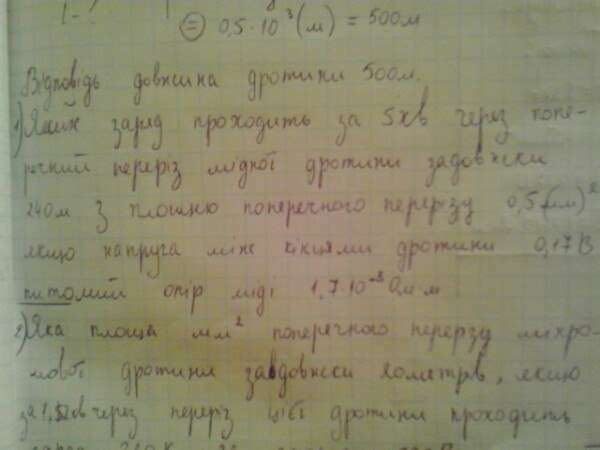 = 0,5·10³(м) = 500м
Відповідь довжина дротини 500м.
1) Який заряд проходить за 5хв через попе-
речний переріз мідної дротини задовжки
240м з площею поперечного перерізу 0,5(мм)²
якщо напруга між кінцями дротини 0,17В
питомий опір міді 1,7·10⁻⁸ Ом·м
2) Яка площа мм² поперечного перерзу
дротини завдовжски якщо
через переріз цієї дротини проходить